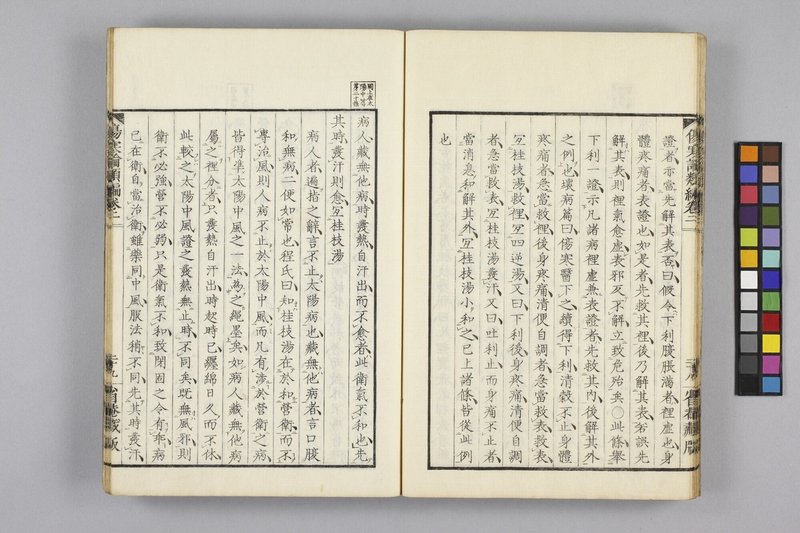 證者亦當先解其表否曰假令下利腹脹滿者裡虛也身
體疼痛者表證也如是者先救其裡後乃解其表若誤先
解其表則裡氣愈虛表邪又不解立致危殆矣〇此條舉
下利一證示凡諸病裡虛兼表證者先救其內後解其外
之例也壞病篇曰傷寒醫下之續得下利清穀不止身體
疼痛者急當救裡後身疼痛清便自調者急當救表救表
宜桂枝湯救裡宜四逆湯又曰下利後身疼痛清便自調
者急當救表宜桂枝湯發汗又曰吐利止而身痛不止者
當消息和解其外宜桂枝湯小和之已上諸條皆從此例
也
傷寒論類編卷二
病人藏無他病時發熱自汗出而不愈者此衛氣不和也先
其時發汗則愈宜桂枝湯
病人者遍指之辭言不止太陽病也藏無他病者言口腹
和無病二便如常也程氏曰知桂枝湯在於和營衛而不
專治風則人病不止於太陽中風而凡有涉於營衛之病
皆得準太陽中風之一法為之繩墨矣如病人藏無他病
屬之裡分者只發熱自汗出時起時已纏綿日久而不休
此較之太陽中風證之發熱無止時不同矣既無風邪則
衛不必強營不必弱只是衛氣不和致閉固之令有乖病
已在衛自當治衛雖藥同中風服法稍不同先其時發汗
傷寒論類編卷二